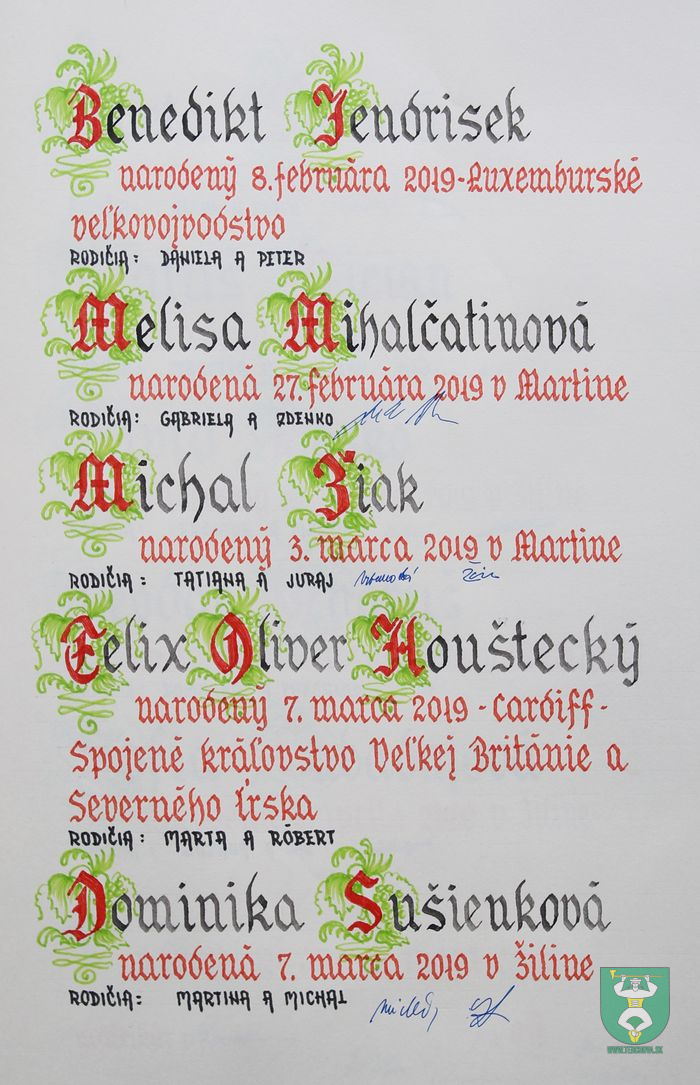 Benedikt Jendrisek
narodený 8. februára 2019 - Luxemburské
veľkovojvodstvo
RODIČIA: DANIELA A PETER
Melisa Mihalčatinová
narodená 27. februára 2019 v Martine
RODIČIA: GABRIELA A ZDENKO
Michal Žiak
narodený 3. marca 2019 v Martine
RODIČIA: TATIANA A JURAJ
Felix Oliver Houštecký
narodený 7. marca 2019 - Cardiff -
Spojené kráľovstvo Veľkej Británie a
Severného Írska
RODIČIA: MARTA A RÓBERT
Dominika Sušienková
narodená 7. marca 2019 v Žiline
RODIČIA: MARTINA A MICHAL
WWW.TERCHOVA.SK